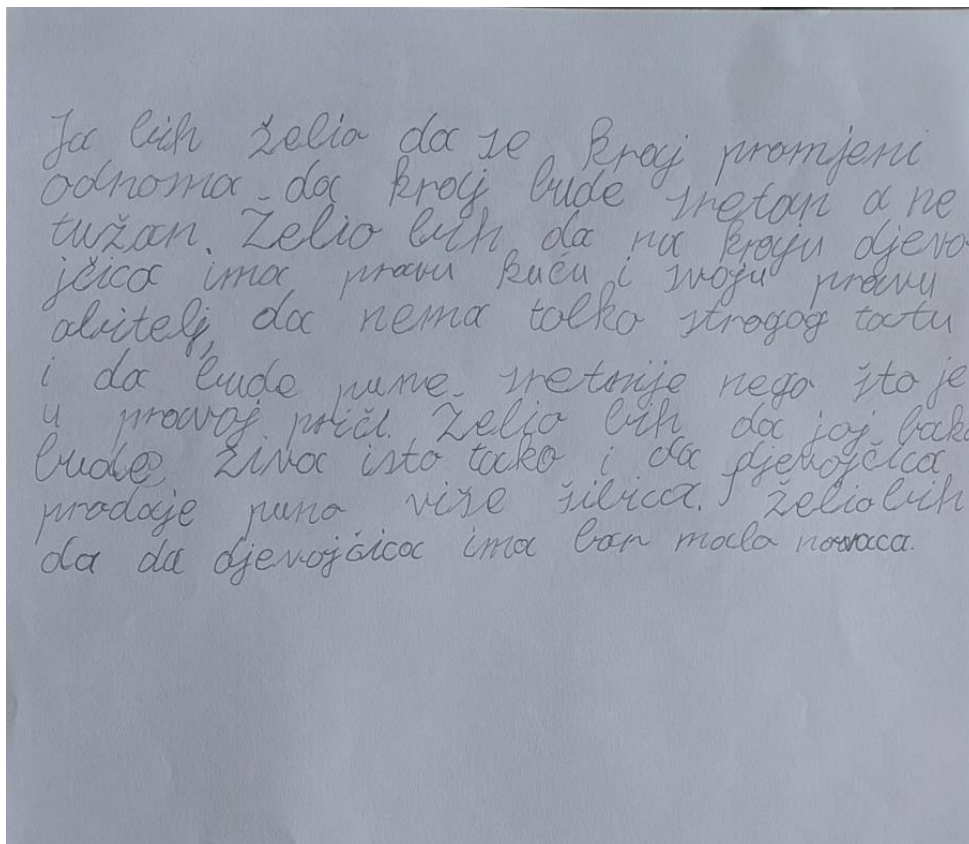 Ja bih želio da se kraj promjeni
odnoma da kraj bude sretan a ne
tužan. Želio bih da na kraju djevo-
jčica ima pravu kuću i svoju pravu
obitelj, da nema tolko strogog tatu
i da bude puno sretnije nego što je
u pravoj priči. Želio bih da joj baka
bude živa isto tako i da djevojčica
prodaje puno više šibica. Želio bih
da da djevojčica ima bar malo novaca.